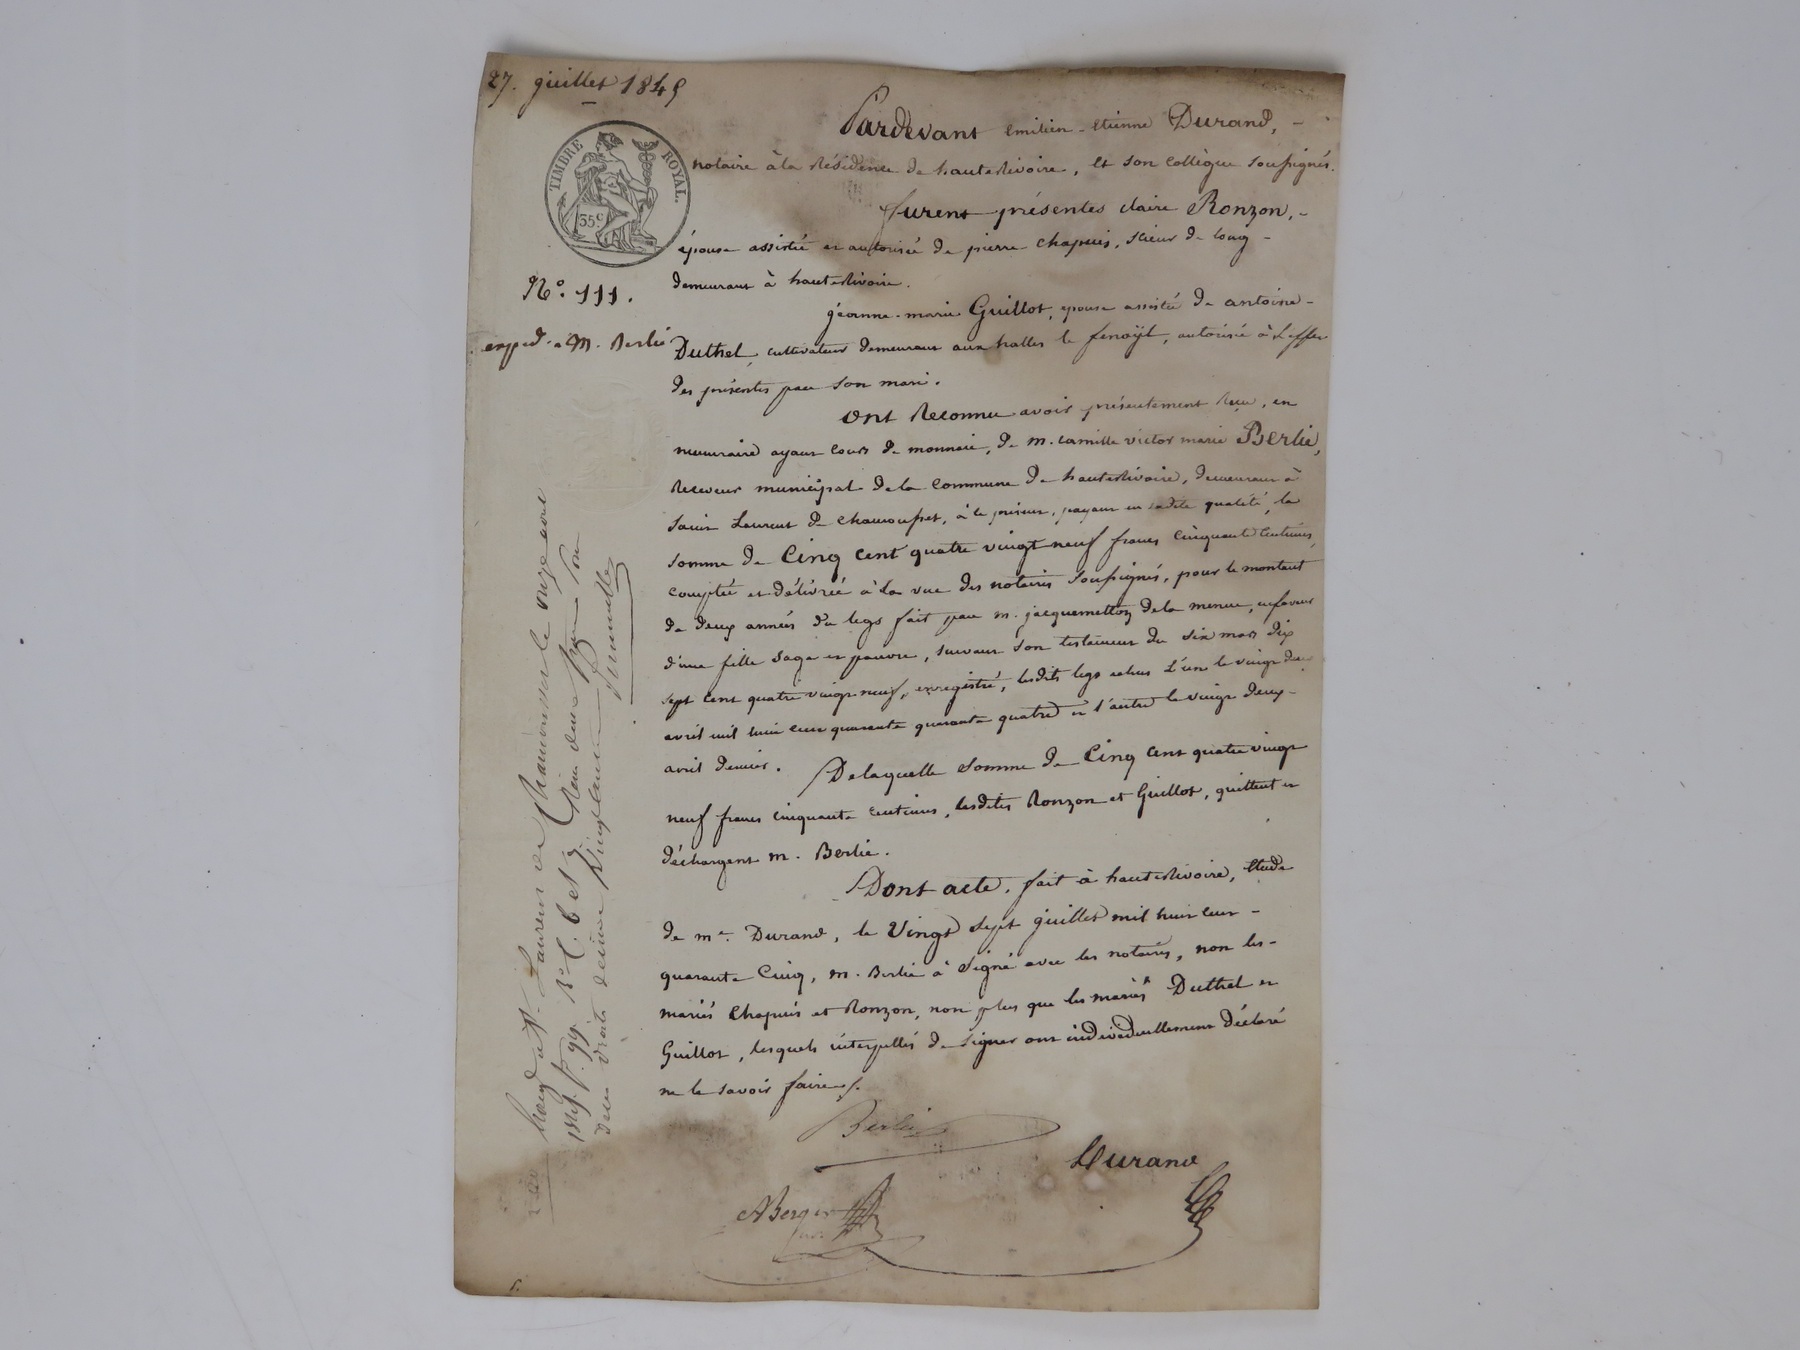 27. juillet 1845
TIMBRE ROYAL.
35c
N.o 111.
exped. a M. Berlié
Pardevant emilien-etienne Durand, -
notaire à la Résidence de hauteRivoire, et son collègue soussignés.
furent présentes claire Ronzon, -
épouse assistée et autorisée de pierre chapuis, scieur de long -
demeurant à hauteRivoire.
jéanne-marie Guillot, epouse assistée de antoine -
Duthel, cultivateur demeurant aux halles le fenoÿl, autorisée à l'effet
des présentes par son mari.
ont Reconnu avoir présentement Reçu, en
numuraire ayant cours de monnaie, de m. camille victor marie Berlié,
Receveur municipal de la commune de hauteRivoire, demeurant à
saint Laurent de chamousset, à ce présent, payant en sadite qualité, la
somme de Cinq cent quatre vingt neuf francs cinquante centimes,
comptée et délivrée à la vue des notaires soussignés, pour le montant
de deux années du legs fait par m. jacquemetton de la menue, en faveur
d'une fille sage et pauvre, suivant son testament du six mars dix
sept cent quatre vingt neuf, enregistré, lesdits legs echus l'un le vingt deux
avril mil huit cent quarante quarante quatre et l'autre le vingt deux -
avril dernier. De laquelle somme de Cinq cent quatre vingt
neuf francs cinquante centimes, lesdites Ronzon et Guillot, quittent et
déchargent m. Berlié.
Dont acte, fait à hauteRivoire, etude
de me. Durand, le Vingt sept juillet mil huit cent -
quarante Cinq, m. Berlié à signé avec les notaires, non les -
mariés Chapuis et Ronzon, non plus que les mariés Duthel et
Guillot, lesquels interpellés de signer ont individuellement déclaré
ne le savoir faire /.
Berlié
Durand
ABerger
St. Laurent de Chamousset le onze août
1845 f. 99 Ro C. 6 et 7. Reçu deux francs